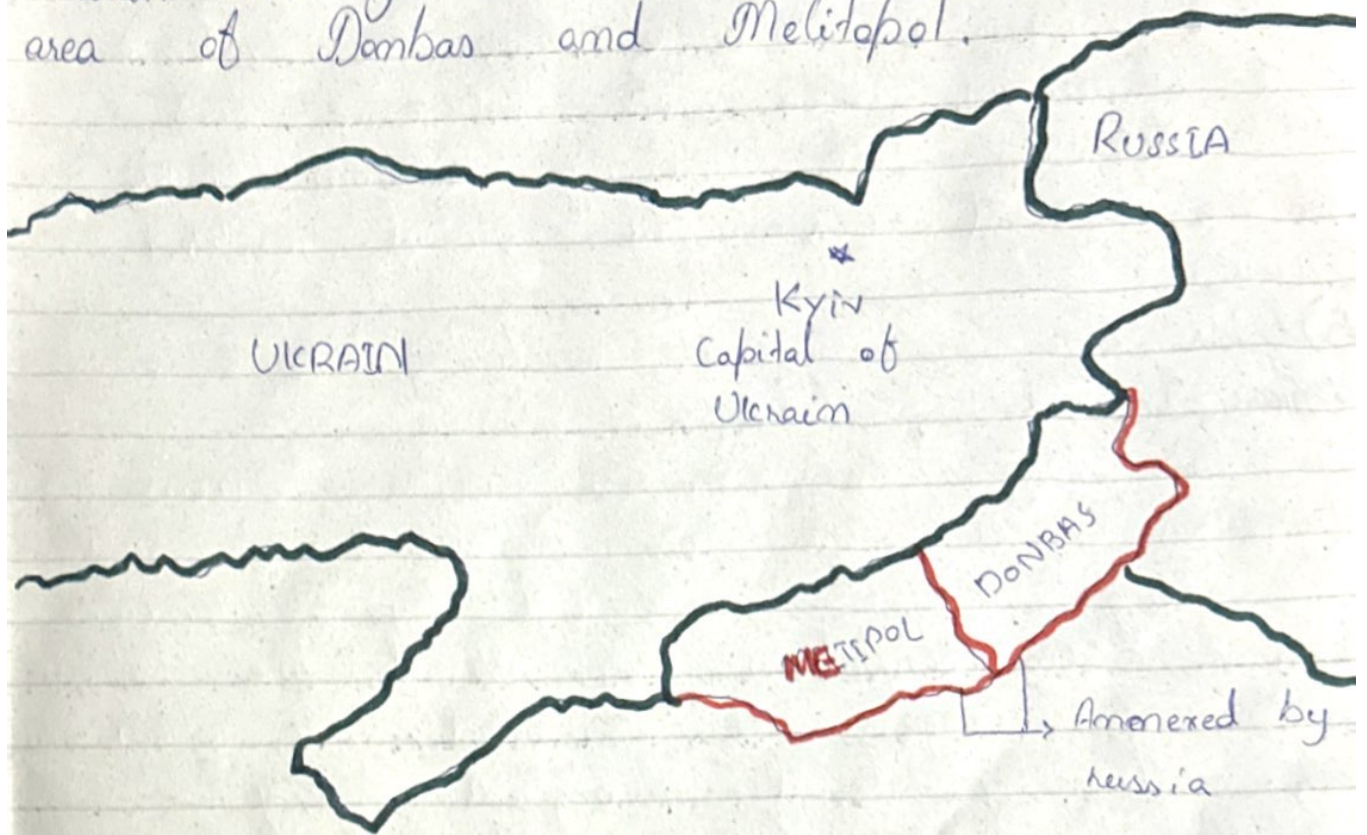 area of Dombas and Melitopol.
RUSSIA
Kyiv
Capital of
Ukrain
UKRAIN
DONBAS
METIPOL
Amonexed by
russia